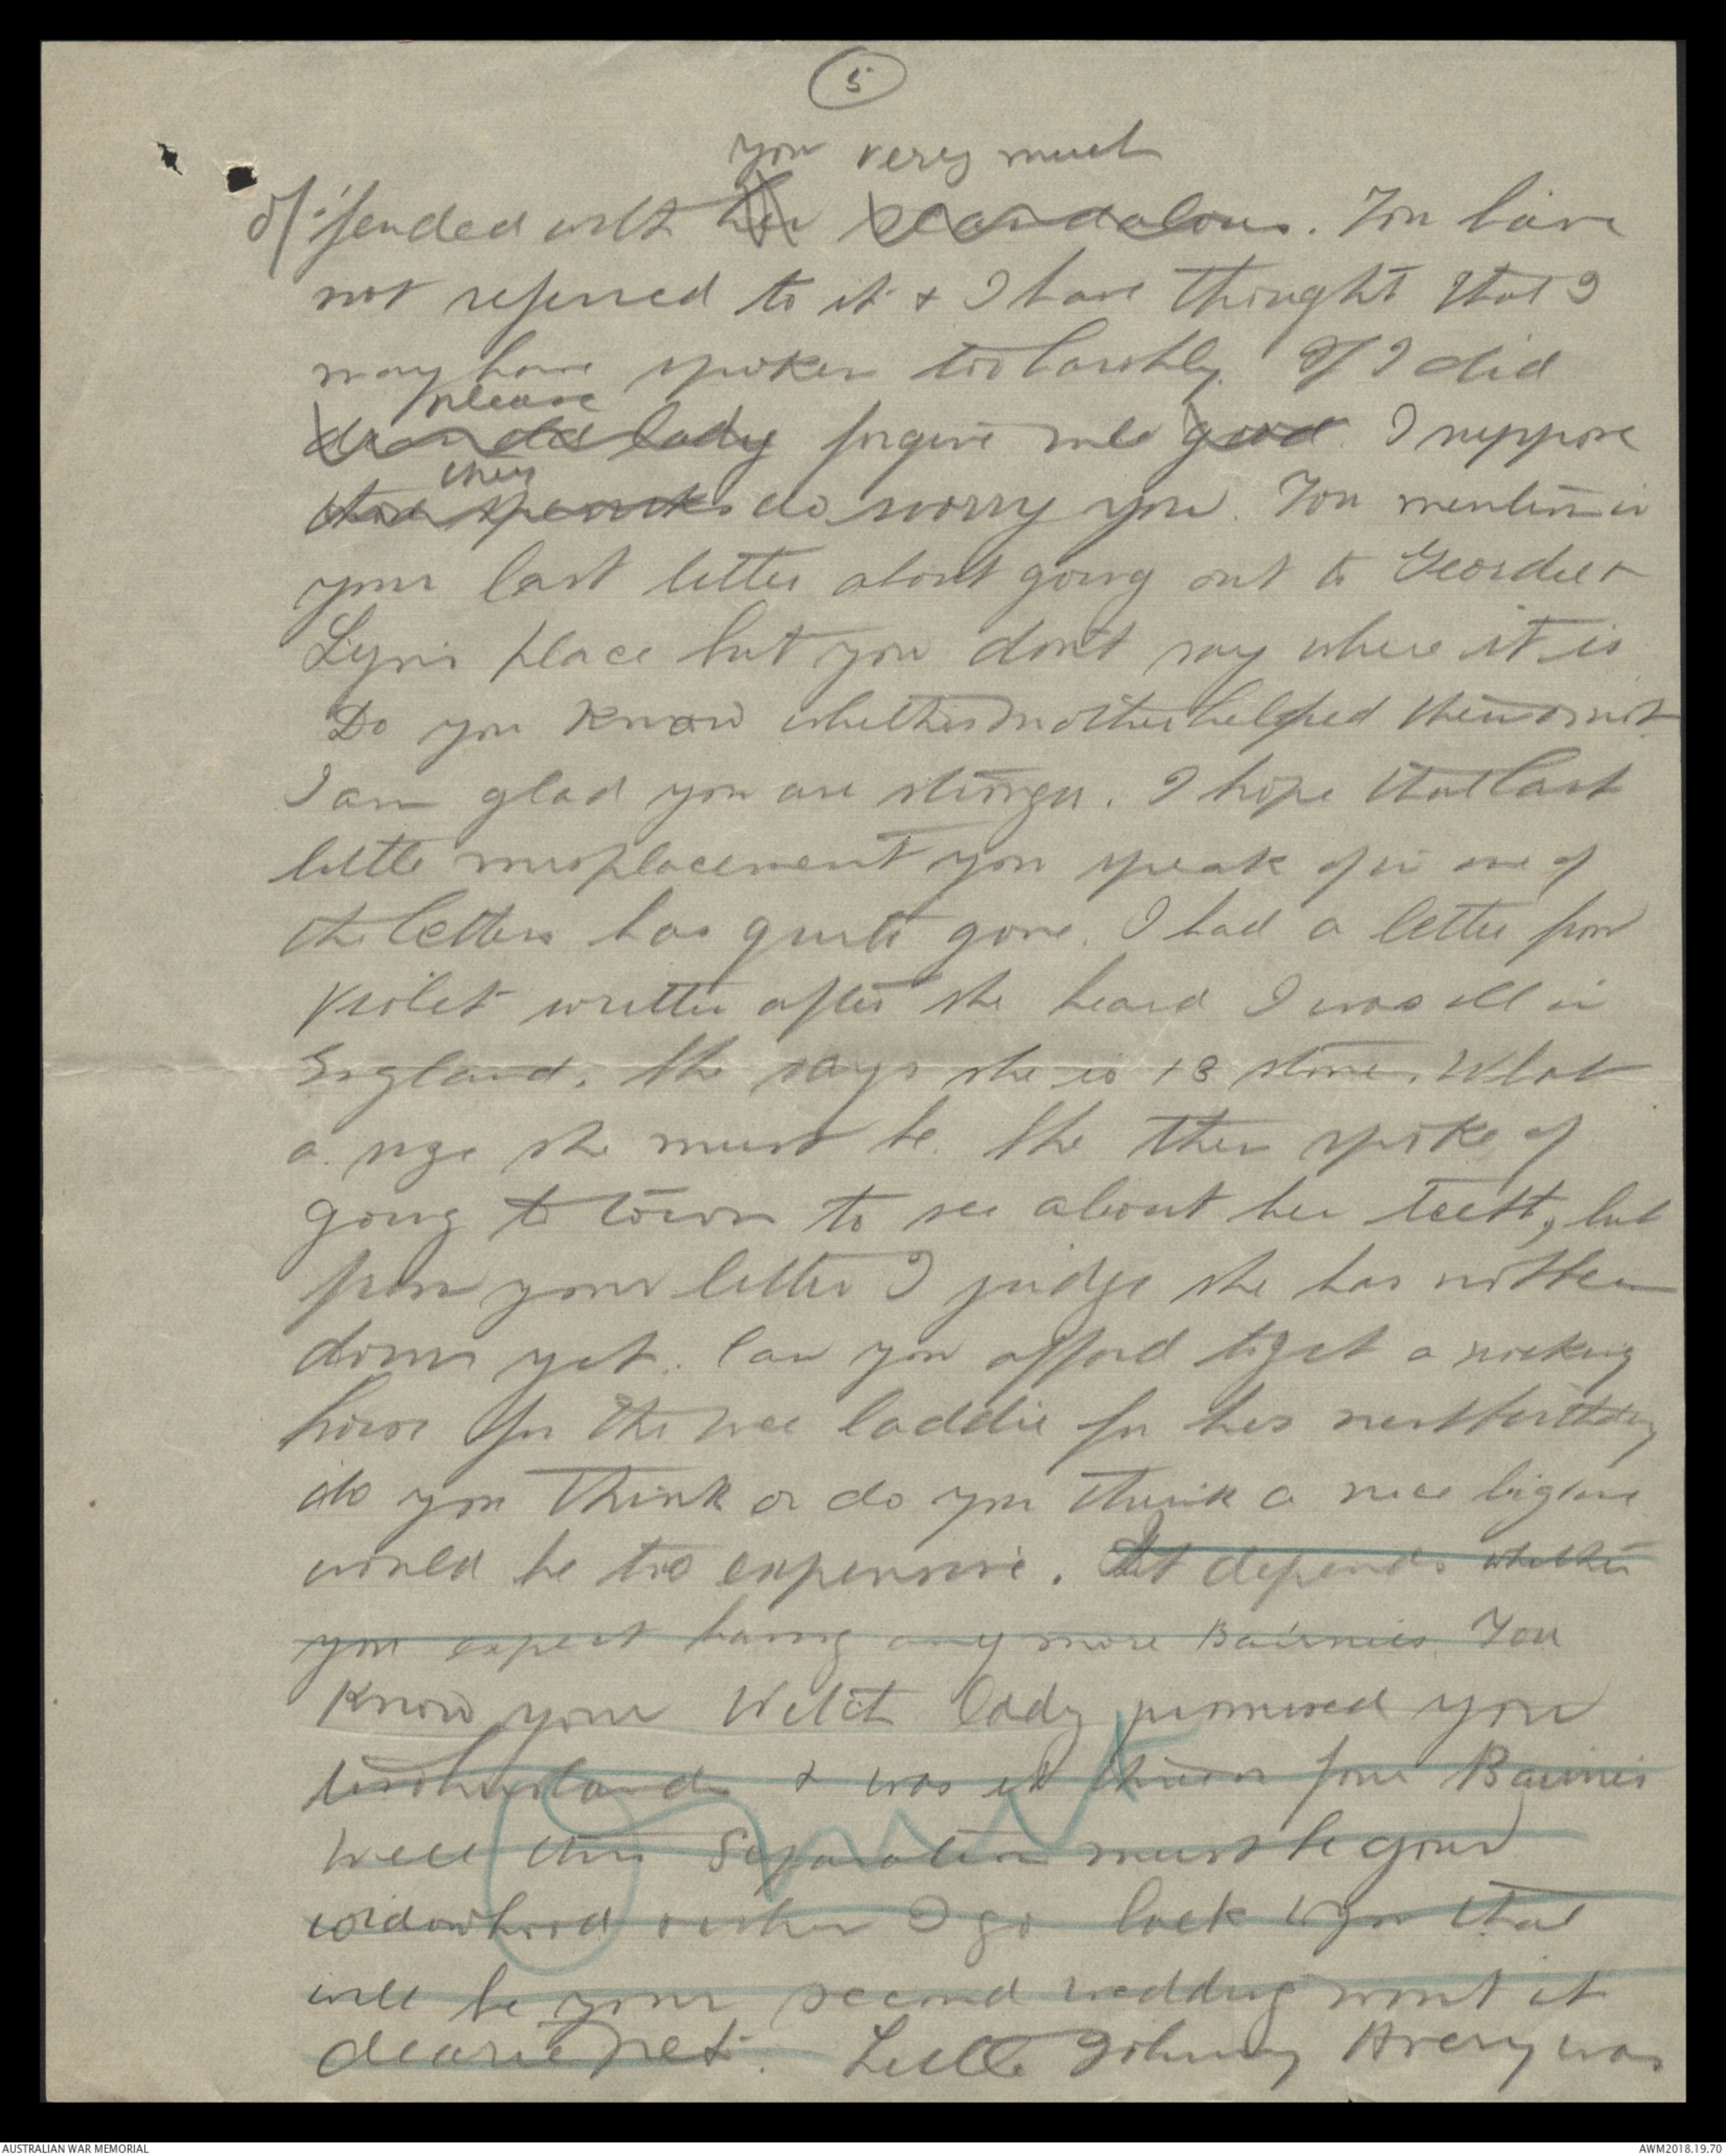 5
you very much
offended with her scandalous. You have
not referred to it & I have thought that I
may have spoken too harshly. If I did
please
lady forgive me good. I suppose
they
do worry you. You mention in
your last letter about going out to Geordie &
Lyn's place but you don't say where it is
Do you know whether mother helped them or not
I am glad you are stronger. I hope that last
little misplacement you speak of in one of
the letters has quite gone. I had a letter from
Violet written after she heard I was ill in
England. She says she is 13 stone. What
a size she must be. She then spoke of
going to town to see about her teeth, but
from your letter I judge she has not been
down yet. Can you afford to get a rocking
horse for the wee laddie for his next birthday
do you think or do you think a nice big one
would be too expensive. It depends whether
you expect having any more Bairnies. You
know your Welch lady promised you
two husbands & was it three or four Bairnies
Well this Separation must be your
widowhood & when I go back to you that
will be your second wedding wont it
dearie pet. Little Johnny Avery was
Omit
AUSTRALIAN WAR MEMORIAL
AWM2018.19.70